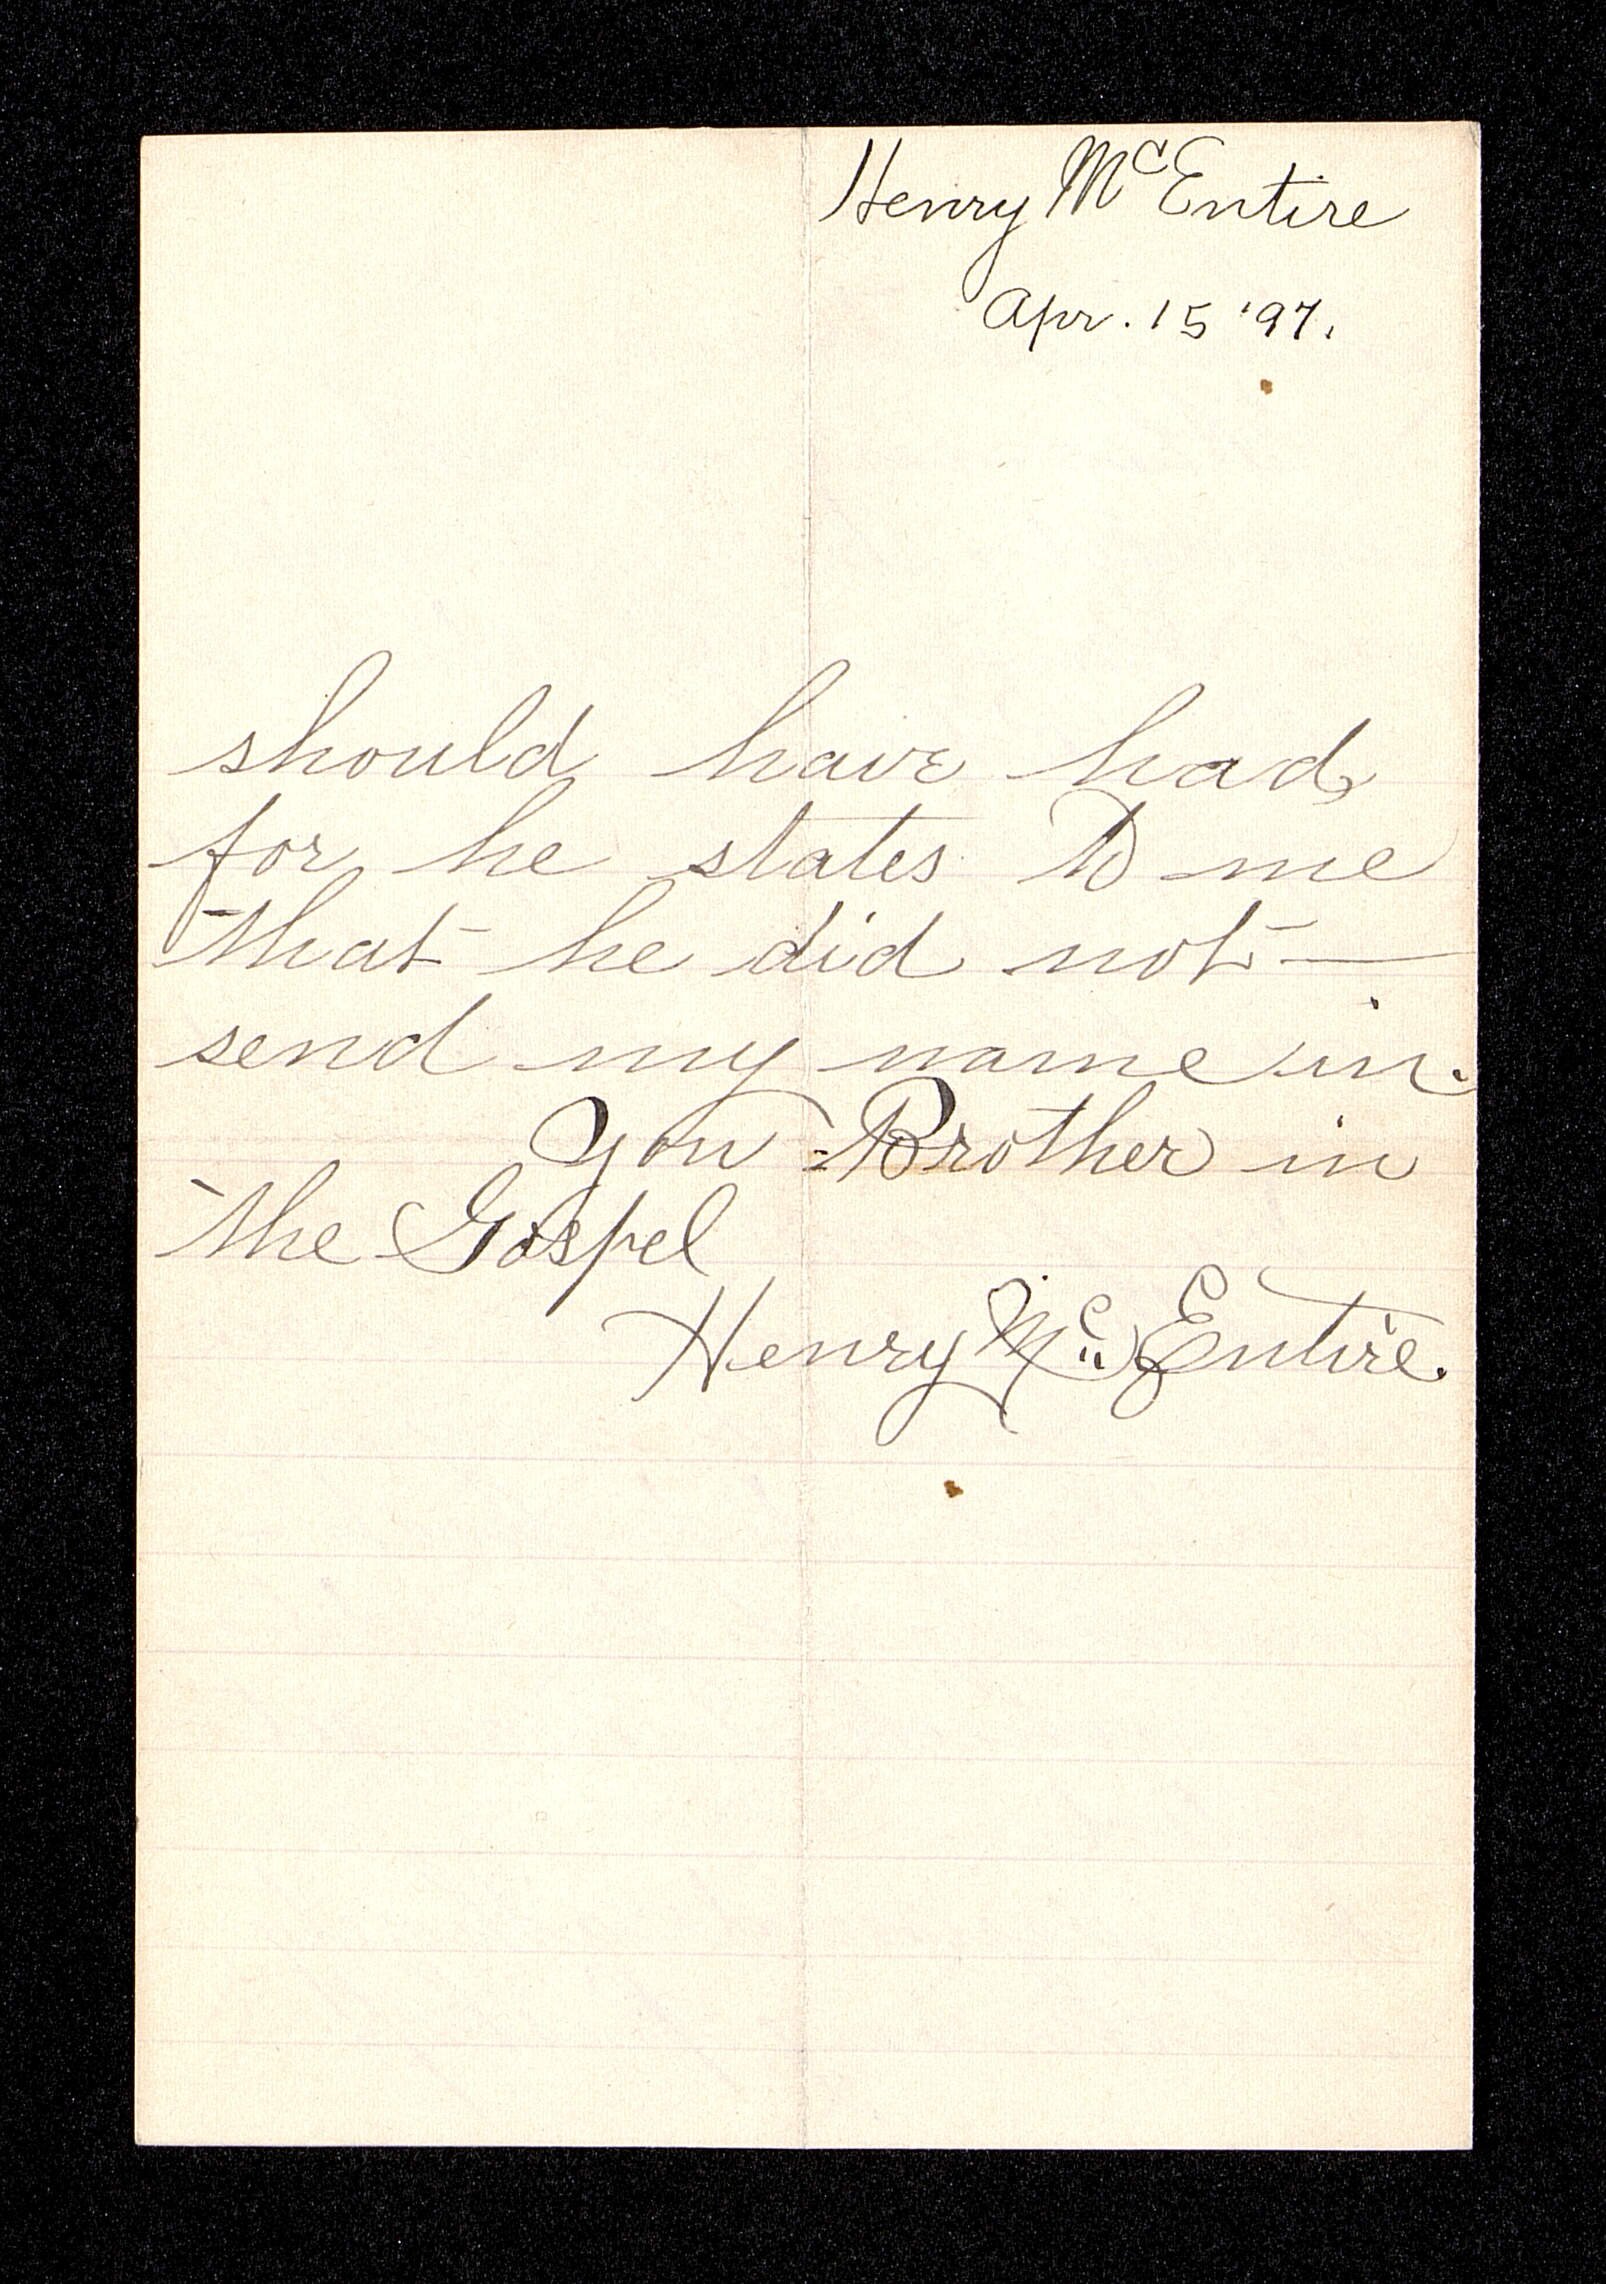 Henry McEntire
Apr. 15 '97.
should have had
for he states to me
that he did not
send my name in.
You Brother in
the Gospel
Henry Mc Entire.